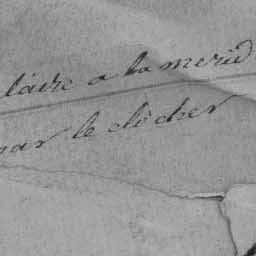 laire a la merid
par le clocher